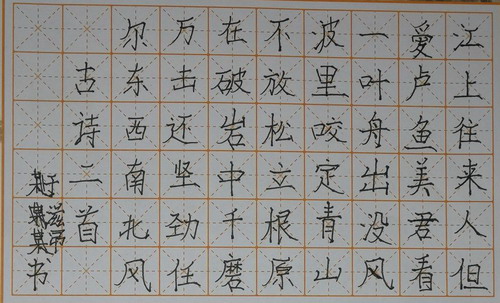 江上往来人但
愛卢鱼美君看
一叶舟出没风
波里咬定青山
不放松立根原
在破岩中千磨
万击还坚劲任
尔东西南北风
古诗二首
书